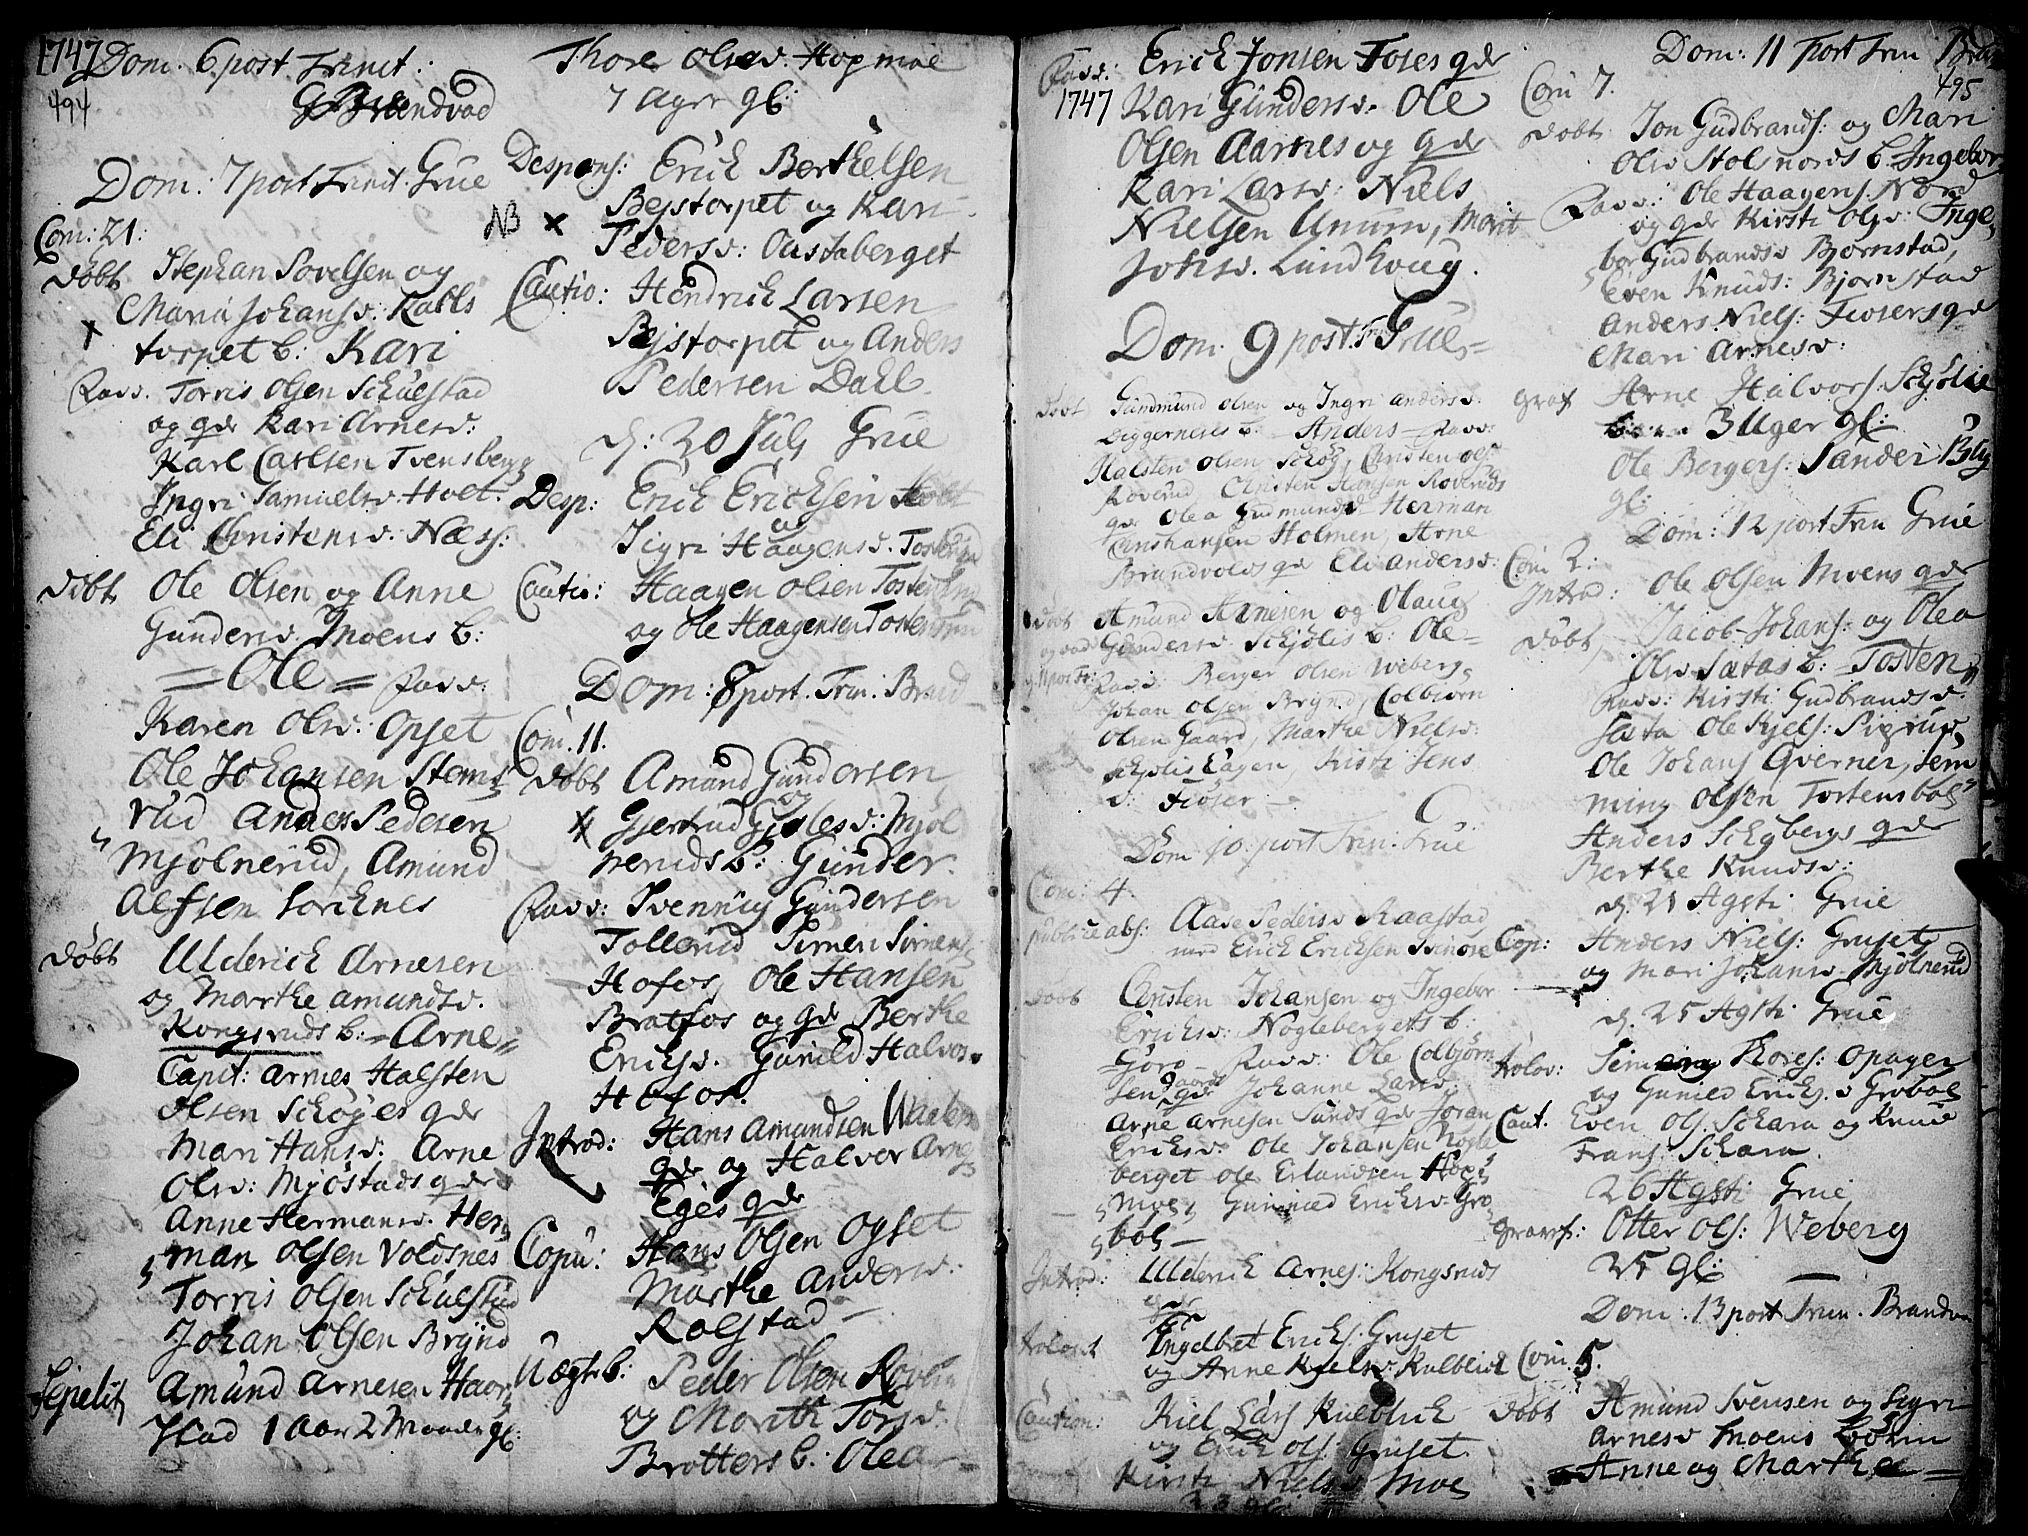 1747
494
Dom. 6 post Trinit:
Brandvod
Dom: 7 post Trinit. Grue
Com: 21:
Döbt Stephan Povelsen og
Maria Johansd. Kabls
torpet b: Kari
Fadd. Torris Olsen Schulstad
og qde Kari Arnesd:
Karl Carlsen Tvensberg
Ingri Samuelsd. Hvet.
Eli Christensd. Næss:
Döbt Ole Olsen og Anne
Gundersd. Moens b:
= Ole = Fadd:
Karen Olsd: Opset
Ole Johansen Stems
rud Anders Pedersen
Mjölnerud, Amund
Alfsen Söricknes
Döbt Ulderich Arnesen
og Marthe Amundsd.
Kongsruds b: = Arne =
Capit: Armes Halsten
Olsen Schöyes qde
Mari Hansd. Arne
Olsd: Mjöstads qde
Anne Hermansd. Her
man Olsen Voldsnes
Torris Olsen Schulstad
Johan Olsen Brynd
Sepelit Amund Arnesen Haor
stad 1 aar 2 Maaneder gl:
Thore Olsd. Hopmoe
7 Ager gl:
Despons: Erich Berthelsen
Bejstorpet og Kari
NB x Pedersd: Oustaberget
Cautio: Hendrich Larsen
Bejstorpet og Anders
Pedersen Dahl
d: 20 July Grue
Desp: Erich Erichsen
og
Sigri Haagensd.
Cautio: Haagen Olsen
og Ole Haagensen
Dom: 8 post. Trin: Brand
Com. 11.
Döbt Amund Gundersen
og
x Gjertrud Gjolesd: Mjöl
neruds b: Gunder.
Fadd: Svennig Gundersen
Tollerud Simen Simens
Hofos, Ole Hansen
Bratfos og qde Berthe
Ericksd. Gunild Halvors
Hofos.
Introd: Hans Amundsen
qde og Halvor Arnes
Eges qde
Copu: Hans Olsen Opset
Marthe Andersd:
Rolstad
Uægte b: Peder Olsen
og Marith Torsd.
Brotters b: Olea
Fadd: Erich Jonsen Foses qde
1747 Kari Gundersd. Ole
Olsen Aarnes og qde
Kari Larsd: Niels
Nielsen Unum, Marit
Johsd. Lundhoug.
Dom. 9 post Tr: Grue
Döbt Gundmund Olsen og Ingri Andersd.
Diggerneses b: Anders Fadd:
Halsten Olsen Schög, Christen Ols:
Roverud Christen Hansen Roveruds
qde Olea Gudmundsd Herman
Christiansen Holmen, Arne
Brandvolds qde Eli Andersd:
Döbt Amund Arnesen og Olaug
Gundersd. Schjölis b: Ole
Fadd: Berger Olsen Weberg
Johan Olsen Brynd, Colbiörn
Olsen Gaard, Marthe Nielsd:
Schjolishagen, Kirsti Jens
d: Fioser
Dom 10. post Trin: Grue
Com: 4.
publice abs: Aase Pedersd Raastad
med Erich Erichsen
Döbt Christen Johansen og Ingebor
Ericksd: Nöglebergets b:
Göro Fadd: Ole Colbjörn
sen Gaards qde Johanne Larsd:
Arne Arnesen Sunds qde Joran
Ericksd. Ole Johansen Nögle
berget Ole Erlandsen Hop
moe, Gunnild Ericksd: Gro
böl
Introd: Ulderich Arnes: Kongsruds
qde
Ingelbret Ericks: Gruset
og Anne Kjelsd: Kulblich
Caution: Kiel Lars Kulblich
og Erich Ols: Gruset
Kirsti Nielsd Moe
Dom: 11 post Trin Brand
495
Com 7.
Döbt Jon Gudbrands: og Mari
Olsd Stolsnords b. Ingebor
Fadd: Ole Haagens. Nord
og qde Kirsti Olsd: Inge
bor Gudbrandsd Bjornstad,
Even Knuds: Bjornstad
Anders Niels: Fiosers qde
Mari Arnesd:
graf Arne Halvors: Schjölie
3 Uger gl:
Ole Bergers: Sander
gl:
Dom: 12 post Trin Grue
Com 2:
Introd: Ole Olsen Moens qde
Döbt, Jacob Johans: og Olea
Olsd Sætas b: Tosten
Fadd: Kirsti Gudbrandsd.
Sæta Ole Kjels:
Ole Johans Qverner, Sem
ming Olsen Tortensböl
Anders Schybergs qde
Berthe Knudsd:
d. 21 Agsti Grue
Cop: Anders Niels: Gruset
og Mari Johansd. Mjölnerud
d. 25 Agsti Grue
Trolov: Semming Thores: Opagen
og Gunild Ericks. d Groböl
Caut. Even Ols. Schara og Knud
Frans: Schara.
26 Agsti Grue
Grauf: Otter Ols: Weberg
25 gl:
Dom: 13 post Trin. Brandvo
Com. 5.
Döbt Amund Svensen og Sigri
Arnesd Moens Böhrn
Anne og Marthe =